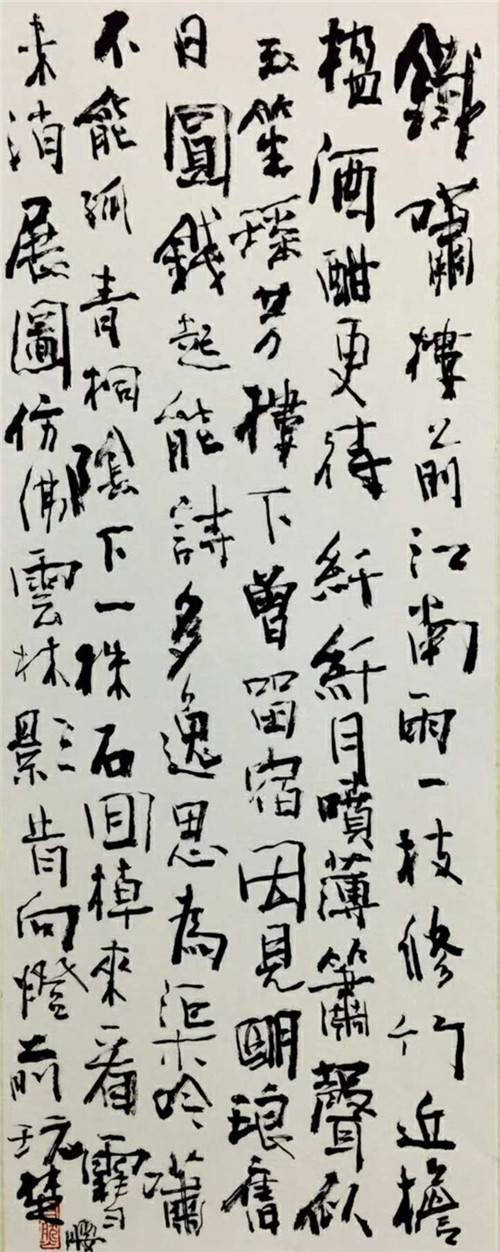 鐵嘯樓前江南雨一枝修竹近檐
楹酒酣更待纤纤月噴薄簫聲似
玉笙璨芳樓下曾留宿因見明琅舊
日圓錢起能詩多逸思為渠吟嘯
不能孤青桐陰下一株石回棹來看雪
未消展圖仿佛雲林影肯向燈前玩楚
腰